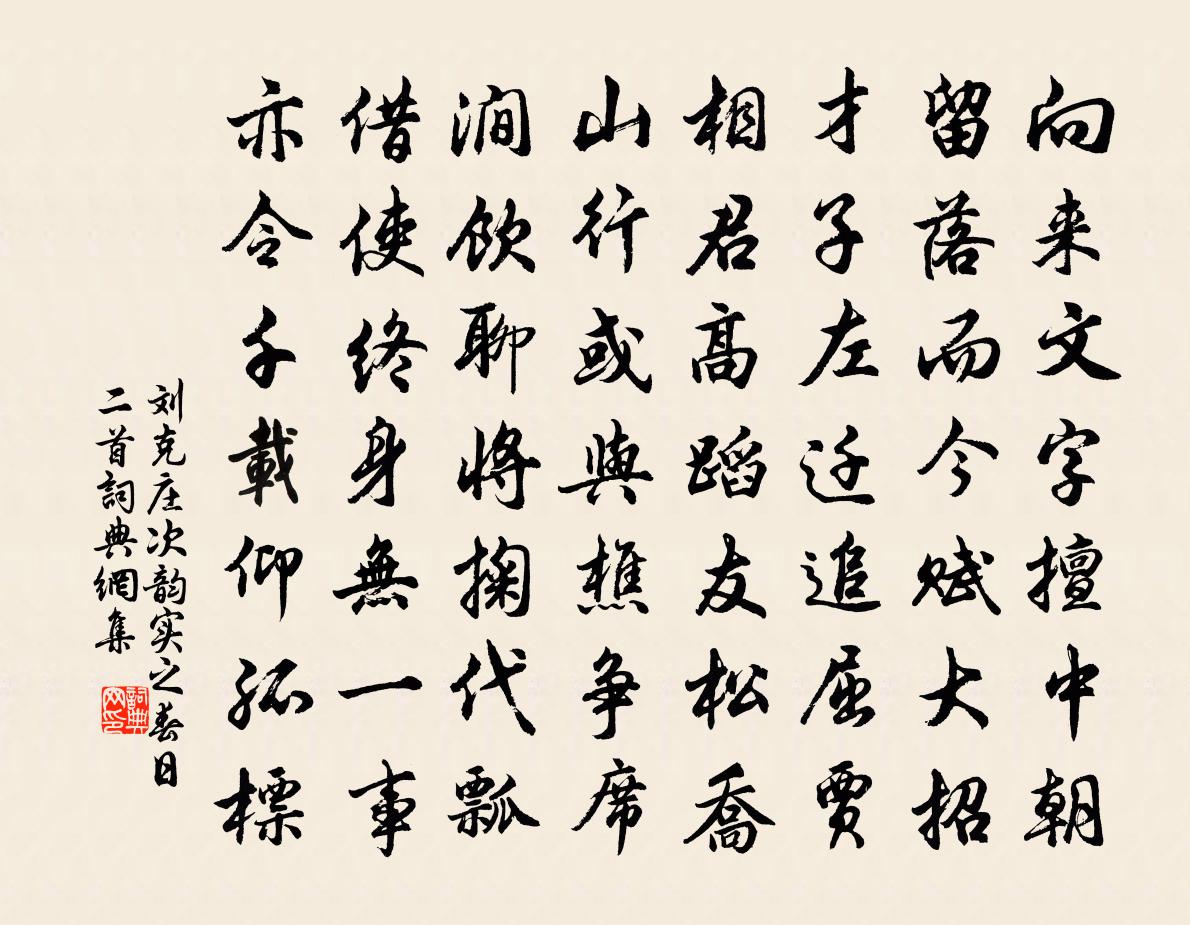 向来文字擅中朝
留落而今赋大招
才子左迁追屈贾
相君高蹈友松乔
山行或與樵争席
澗飲聊將掬代瓢
借使终身無一事
亦令千載仰孤標
刘克庄次韵实之春日
二首詞典網集
詞典
网印